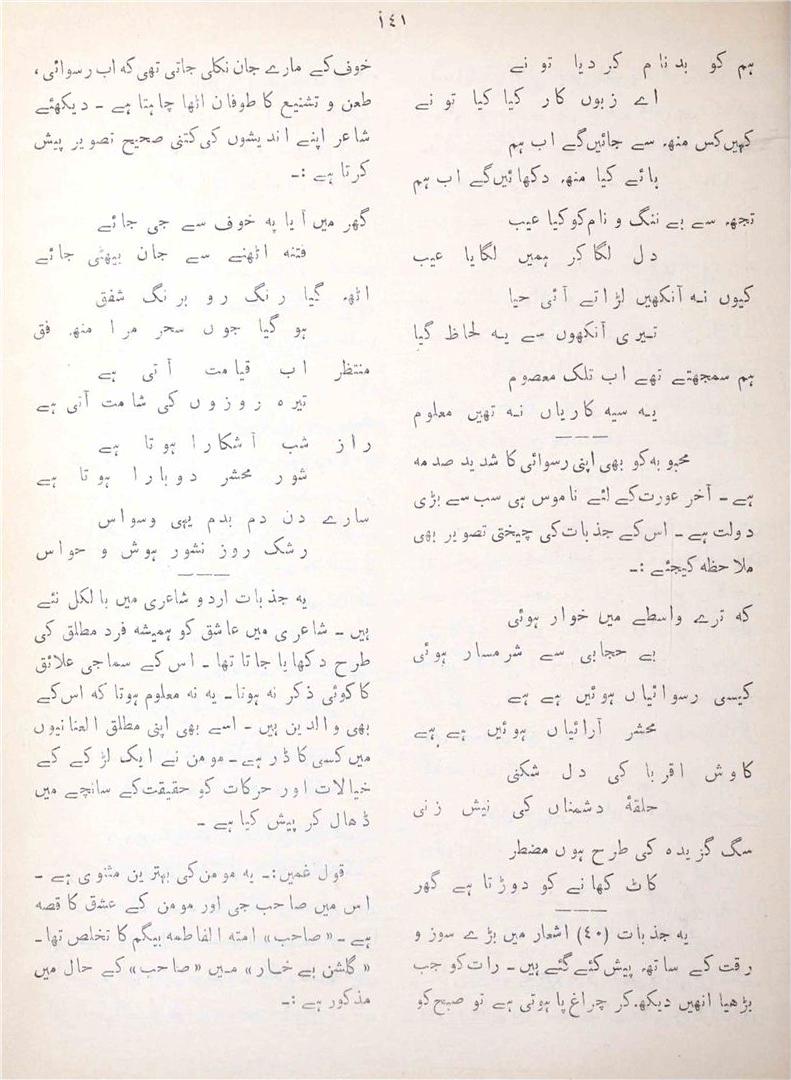 ١٤١
ہم کو بدنام کر دیا تو نے
اے زبوں کار کیا کیا تو نے
کہیں کس منھ سے جائیں گے اب ہم
ہائے کیا منھ دکھائیں گے اب ہم
تجھ سے بے ننگ و نام کو کیا عیب
دل لگا کر ہمیں لگایا عیب
کیوں نہ آنکھیں لڑاتے آئی حیا
تیری آنکھوں سے یہ لحاظ گیا
ہم سمجھتے تھے اب تلک معصوم
یہ سیہ کاریاں نہ تھیں معلوم
محبوبہ کو بھی اپنی رسوائی کا شدید صدمہ
ہے ۔ آخر عورت کے لئے ناموس ہی سب سے بڑی
دولت ہے ۔ اس کے جذبات کی چیختی تصویر بھی
ملاحظہ کیجئے :۔
کہ ترے واسطے میں خوار ہوئی
بے حجابی سے شرمسار ہوئی
کیسی رسوائیاں ہوئیں ہے ہے
محشر آرائیاں ہوئیں ہے ہے
کاوش اقربا کی دل شکنی
حلقۂ دشمناں کی نیش زنی
سگ گزیدہ کی طرح ہوں مضطر
کاٹ کھانے کو دوڑتا ہے گھر
یہ جذبات (٤٠) اشعار میں بڑے سوز و
رقت کے ساتھ پیش کئے گئے ہیں ۔ رات کو جب
بڑھیا انھیں دیکھ کر چراغ پا ہوتی ہے تو صبح کو
خوف کے مارے جان نکلی جاتی تھی کہ اب رسوائی،
طعن و تشنیع کا طوفان اٹھا چاہتا ہے ۔ دیکھئے
شاعر اپنے اندیشوں کی کتنی صحیح تصویر پیش
کرتا ہے :۔
گھر میں آیا پہ خوف سے جی جائے
فتنہ اٹھنے سے جان بیٹھی جائے
اٹھ گیا رنگ رو برنگ شفق
ہو گیا جوں سحر مرا منھ فق
منتظر اب قیامت آتی ہے
تیرہ روزوں کی شامت آتی ہے
راز شب آشکارا ہوتا ہے
شور محشر دوبارا ہوتا ہے
سارے دن دم بدم یہی وسواس
رشک روز نشور ہوش و حواس
یہ جذبات اردو شاعری میں بالکل نئے
ہیں ۔ شاعری میں عاشق کو ہمیشہ فرد مطلق کی
طرح دکھایا جاتا تھا ۔ اس کے سماجی علائق
کا کوئی ذکر نہ ہوتا ۔ یہ نہ معلوم ہوتا کہ اس کے
بھی والدین ہیں ۔ اسے بھی اپنی مطلق العنانیوں
میں کسی کا ڈر ہے ۔ مومن نے ایک لڑکے کے
خیالات اور حرکات کو حقیقت کے سانچے میں
ڈھال کر پیش کیا ہے ۔
قول غمیں :۔ یہ مومن کی بہترین مثنوی ہے ۔
اس میں صاحب جی اور مومن کے عشق کا قصہ
ہے ۔ «صاحب» امتہ الفاطمہ بیگم کا تخلص تھا ۔
«گلشن بے خار» میں «صاحب» کے حال میں
مذکور ہے :۔